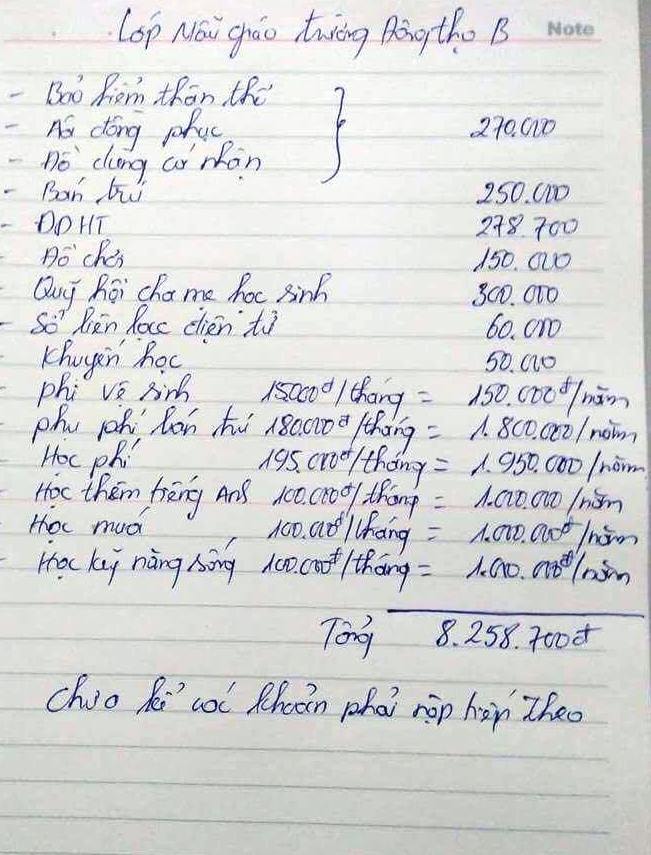 Lớp Mẫu giáo trường Đông thọ B
Note
- Bảo hiểm thân thể
- Áo đồng phục 270.000
- Đồ dùng cá nhân
- Bán trú 250.000
- ĐDHT 278.700
- Đồ chơi 150.000
- Quỹ hội cha mẹ học sinh 300.000
- Sổ liên lạc điện tử 60.000
- Khuyến học 50.000
- phí vệ sinh 15000đ/tháng = 150.000đ/năm
- phụ phí bán trú 180.000đ/tháng = 1.800.000/năm
- Học phí 195.000đ/tháng = 1.950.000/năm
- Học thêm tiếng Anh 100.000đ/tháng = 1.000.000/năm
- Học múa 100.000đ/tháng = 1.000.000đ/năm
- Học kỹ năng sống 100.000đ/tháng = 1.000.000đ/năm
Tổng 8.258.700đ
Chưa kể các khoản phải nộp tiếp theo